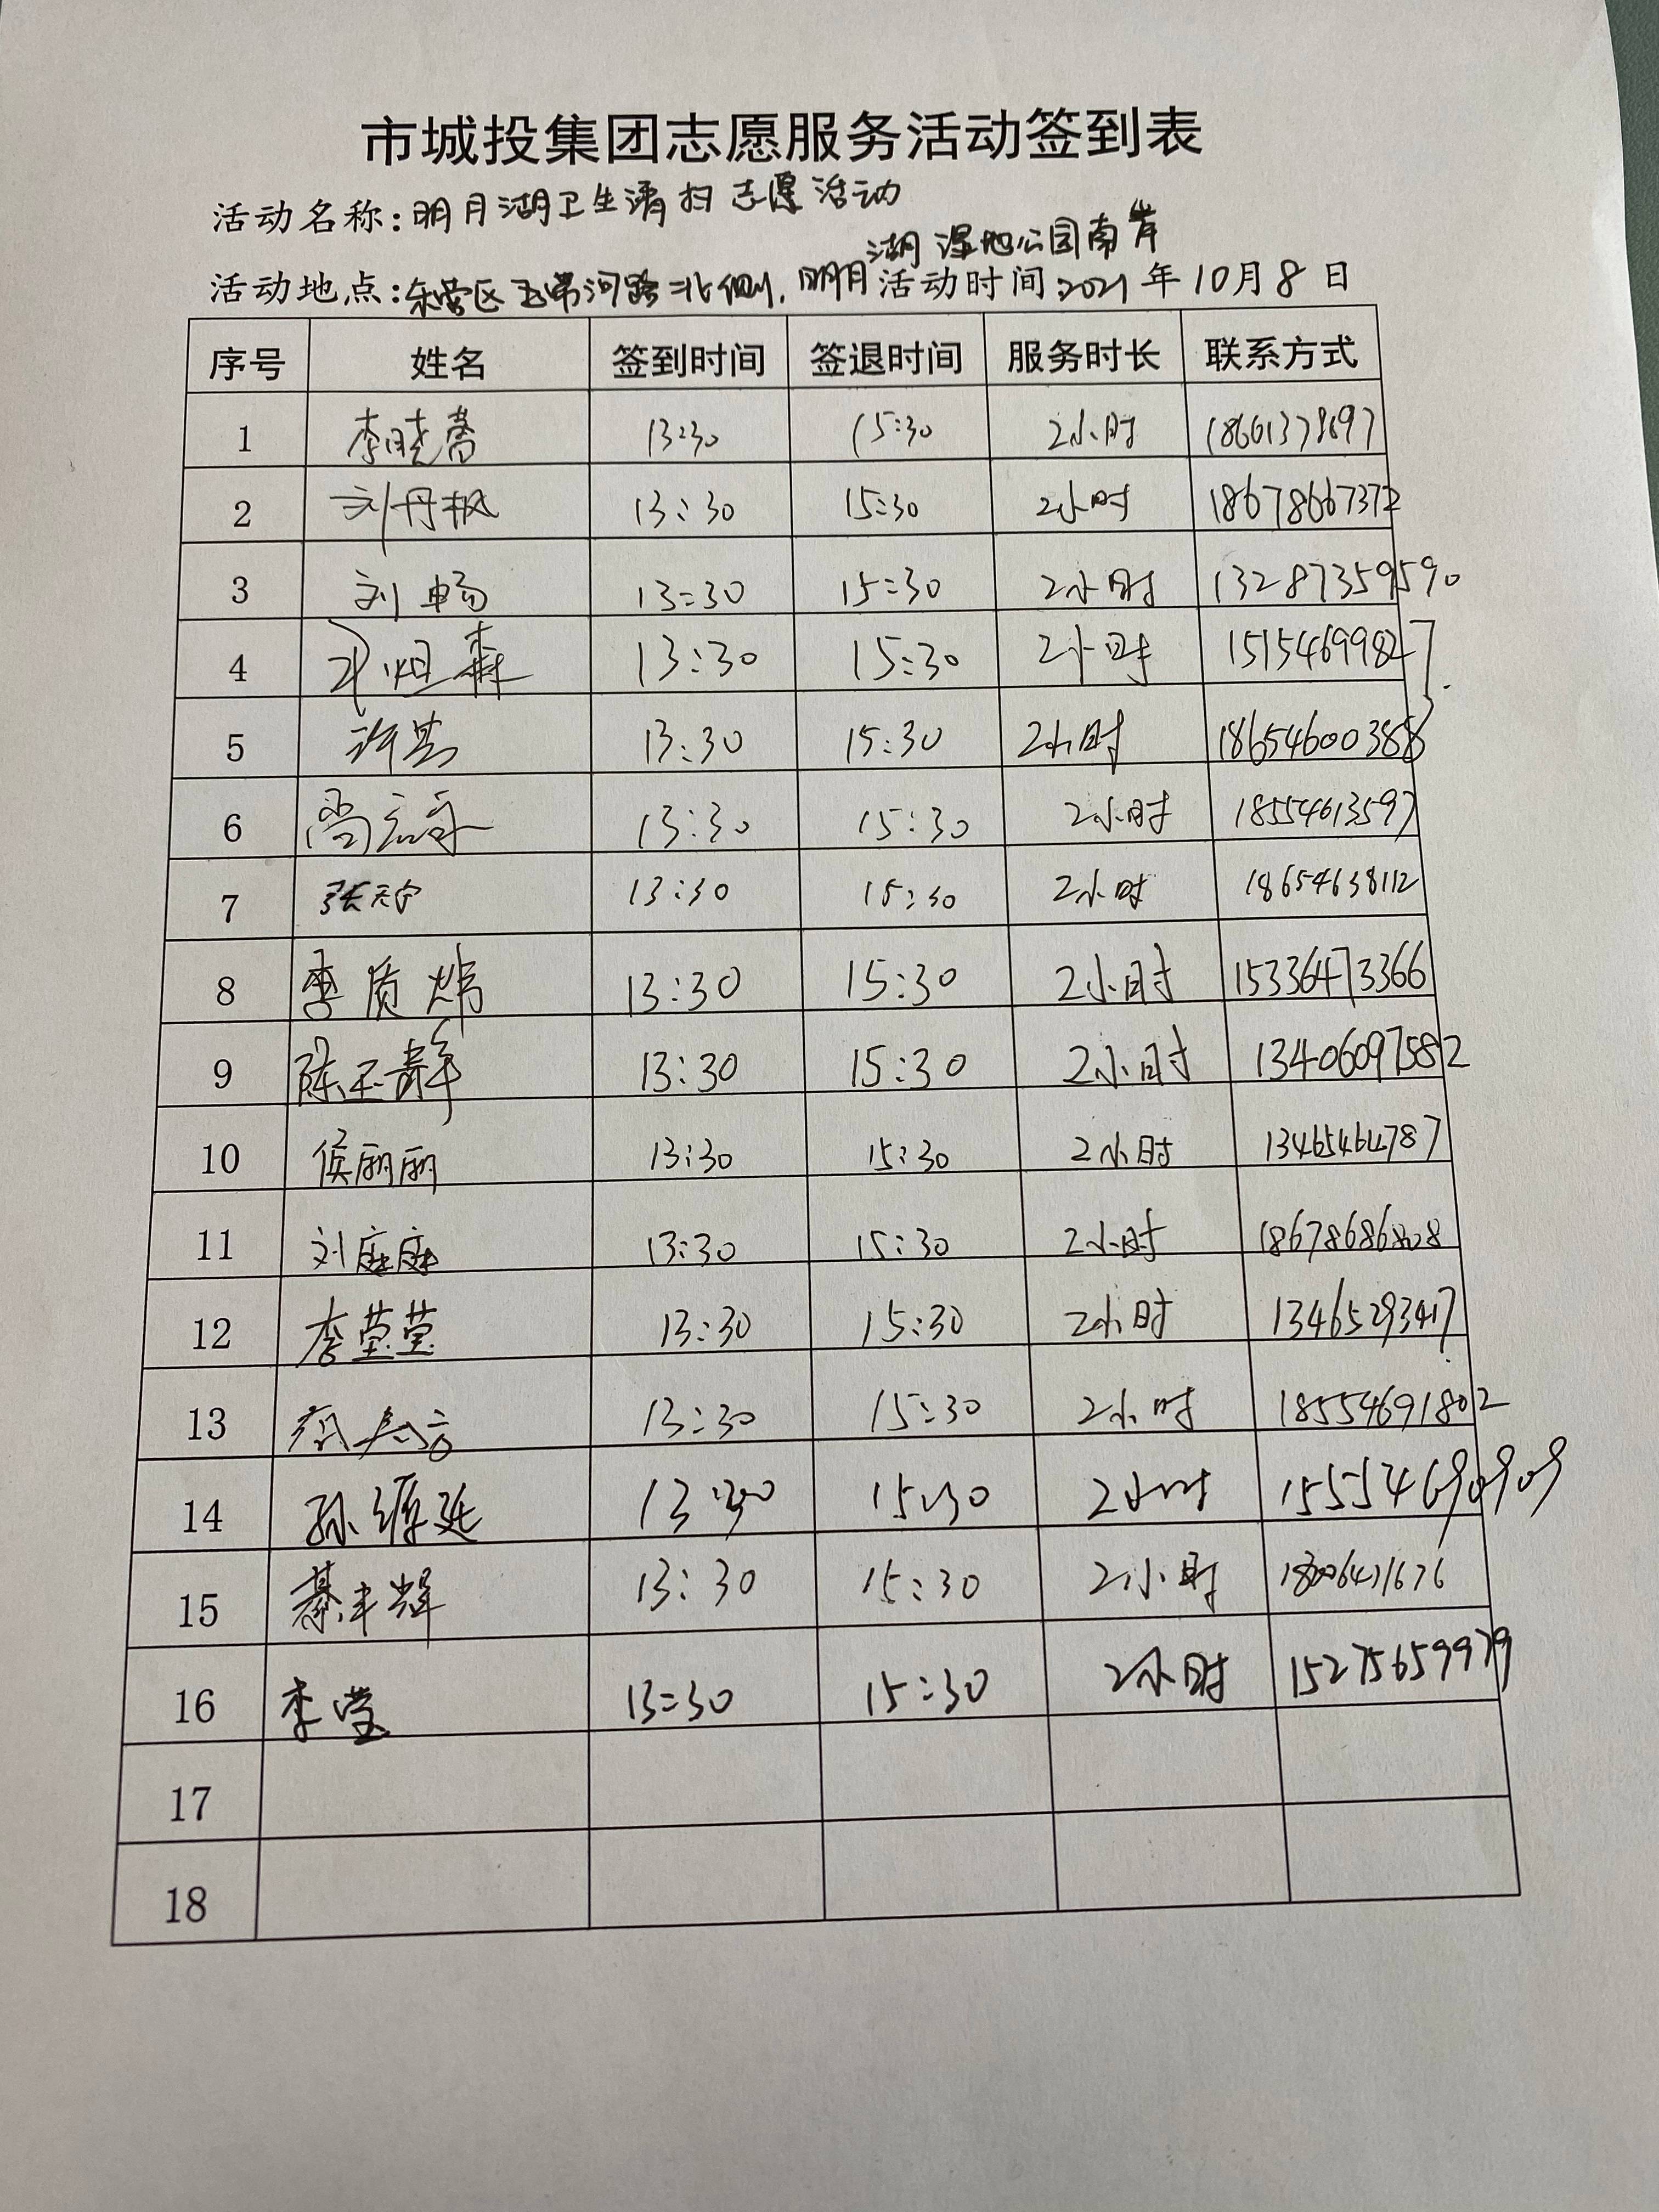 市城投集团志愿服务活动签到表
活动名称:明月湖卫生清扫志愿活动
活动地点:东营区玉带河路北侧,明月湖湿地公园南岸 活动时间:2021年10月8日
序号 姓名 签到时间 签退时间 服务时长 联系方式
1 李晓蕾 13:30 15:30 2小时 18661378697
2 刘丹枫 13:30 15:30 2小时 18678667372
3 刘畅 13:30 15:30 2小时 13287359590
4 13:30 15:30 2小时 15154699827
5 13:30 15:30 2小时
6 13:30 15:30 2小时 18554613597
7 张天宁 13:30 15:30 2小时 18654638112
8 李质炜 13:30 15:30 2小时 15336473366
9 陈玉静 13:30 15:30 2小时 13406097582
10 侯丽丽 13:30 15:30 2小时 13465464787
11 刘庭庭 13:30 15:30 2小时 18678686808
12 李莹莹 13:30 15:30 2小时 13465293417
13 13:30 15:30 2小时 18554691802
14 13:30 15:30 2小时 15554690909
15 綦丰辉 13:30 15:30 2小时
16 李莹 13:30 15:30 2小时 15275659979
17
18